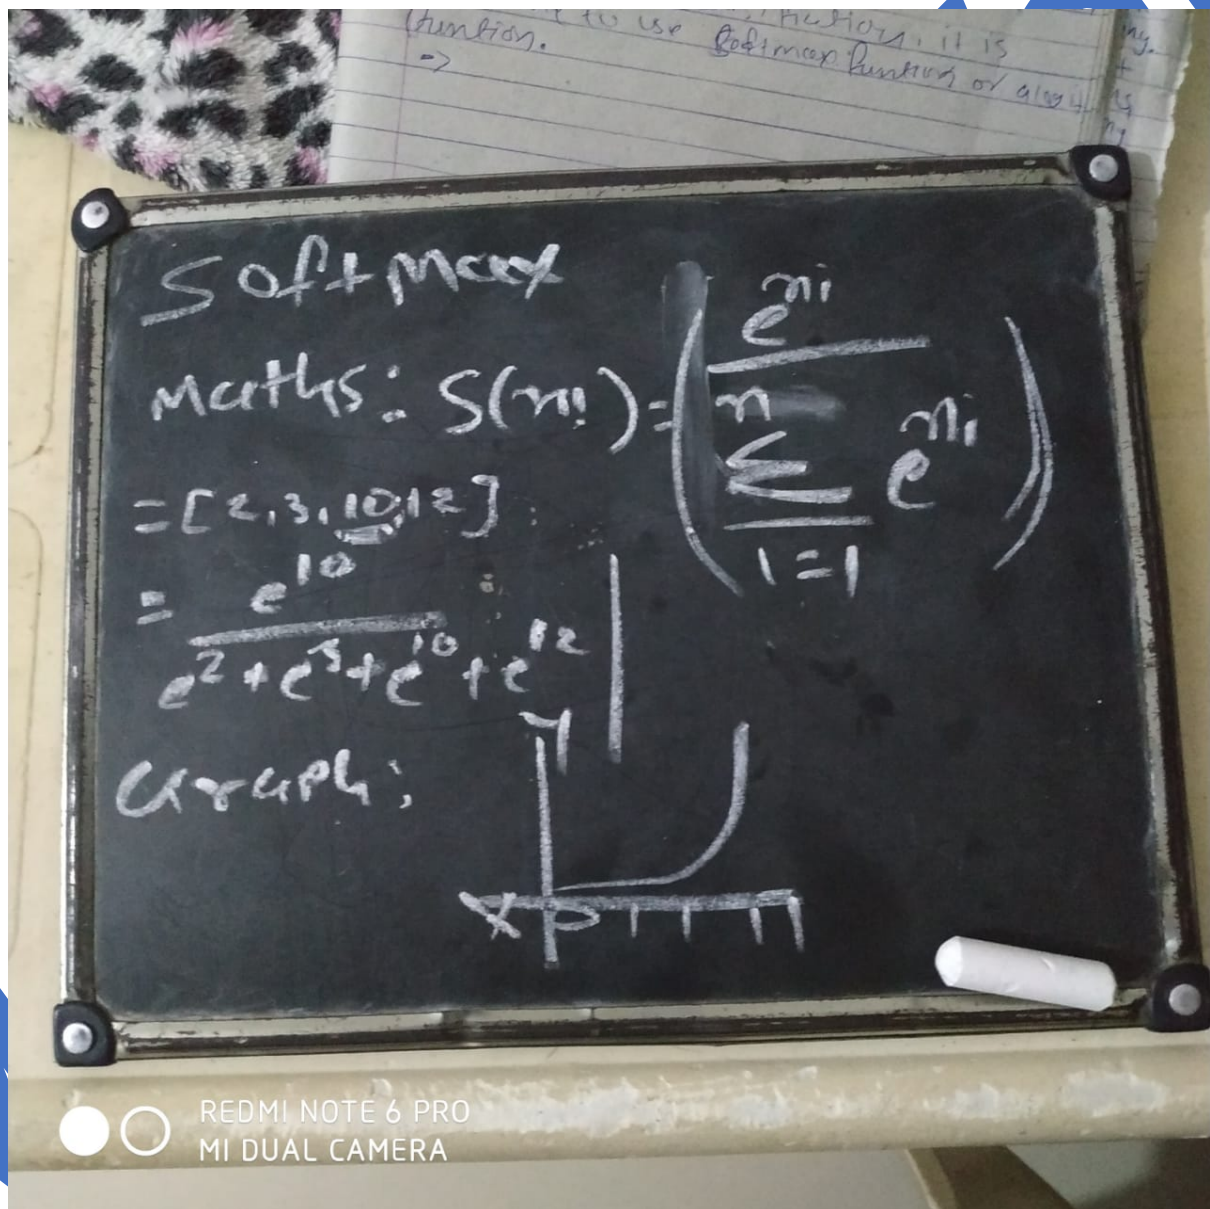 function, it is
to use Softmax function or
function.
=>
Softmax
Maths: S(xi) = ( e^xi / n Σ i=1 e^xi )
= [2,3,10,12]
= e^10 / e^2 + e^3 + e^10 + e^12
Graph:
Y
X 0
REDMI NOTE 6 PRO
MI DUAL CAMERA